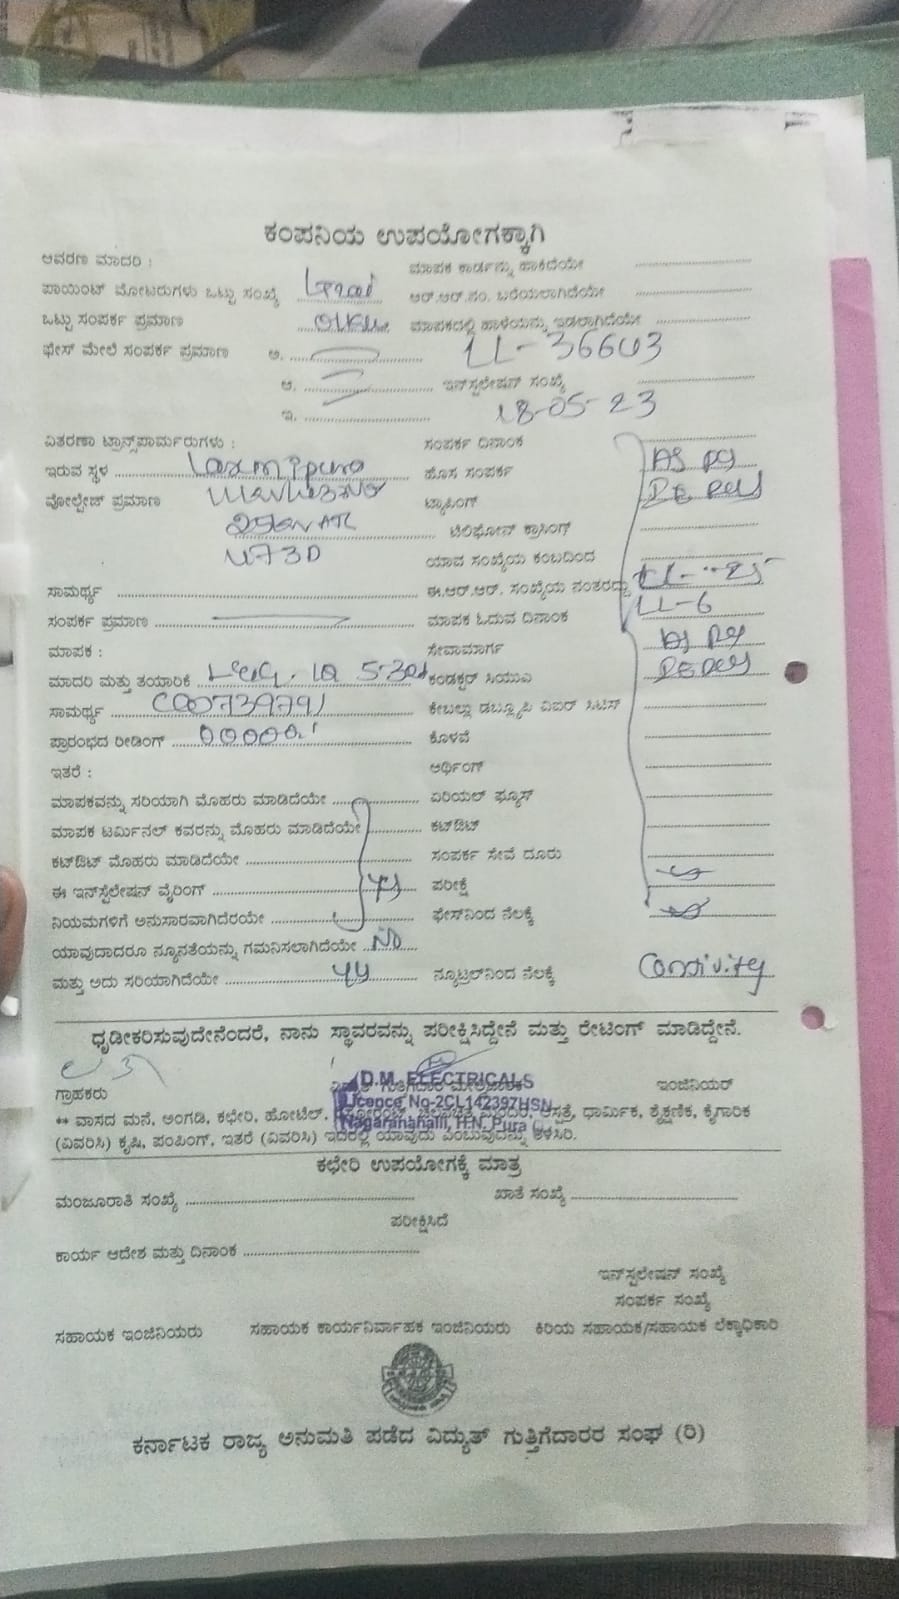 ಕಂಪನಿಯ ಉಪಯೋಗಕ್ಕಾಗಿ
ಆವರಣ ಮಾದರಿ : ಮಾಪಕ ಕಾರ್ಡನ್ನು ಹಾಕಿದೆಯೇ
ಪಾಯಿಂಟ್ ಮೋಟರುಗಳು ಒಟ್ಟು ಸಂಖ್ಯೆ ಆರ್.ಆರ್.ನಂ. ಬರೆಯಲಾಗಿದೆಯೇ
ಒಟ್ಟು ಸಂಪರ್ಕ ಪ್ರಮಾಣ ಮಾಪಕದಲ್ಲಿ ಹಾಳೆಯನ್ನು ಇಡಲಾಗಿದೆಯೇ
ಫೇಸ್ ಮೇಲೆ ಸಂಪರ್ಕ ಪ್ರಮಾಣ ಅ. LL-36603
ಆ. ಇನ್‌ಸ್ಟಲೇಷನ್ ಸಂಖ್ಯೆ
ಇ. 18-05-23
ವಿತರಣಾ ಟ್ರಾನ್ಸ್‌ಪಾರ್ಮರುಗಳು : ಸಂಪರ್ಕ ದಿನಾಂಕ
ಇರುವ ಸ್ಥಳ Laxmipura ಹೊಸ ಸಂಪರ್ಕ
ವೋಲ್ಟೇಜ್ ಪ್ರಮಾಣ ಟ್ಯಾಪಿಂಗ್
ಟೆಲಿಫೋನ್ ಕ್ರಾಸಿಂಗ್
ಯಾವ ಸಂಖ್ಯೆಯ ಕಂಬದಿಂದ
ಸಾಮರ್ಥ್ಯ ಈ.ಆರ್.ಆರ್. ಸಂಖ್ಯೆಯ ನಂತರದ್ದು
ಸಂಪರ್ಕ ಪ್ರಮಾಣ ಮಾಪಕ ಓದುವ ದಿನಾಂಕ LL-6
ಮಾಪಕ : ಸೇವಾಮಾರ್ಗ
ಮಾದರಿ ಮತ್ತು ತಯಾರಿಕೆ ಕಂಡಕ್ಟರ್ ಸಿಯುಎ
ಸಾಮರ್ಥ್ಯ ಕೇಬಲ್ಲು ಡಬ್ಲ್ಯೂಪಿ ವಿಐರ್ ಸಿಟಿಸ್
ಪ್ರಾರಂಭದ ರೀಡಿಂಗ್ ಕೊಳವೆ
ಇತರೆ : ಅರ್ಥಿಂಗ್
ಮಾಪಕವನ್ನು ಸರಿಯಾಗಿ ಮೊಹರು ಮಾಡಿದೆಯೇ ಏರಿಯಲ್ ಫ್ಯೂಸ್
ಮಾಪಕ ಟರ್ಮಿನಲ್ ಕವರನ್ನು ಮೊಹರು ಮಾಡಿದೆಯೇ ಕಟ್‌ಔಟ್
ಕಟ್‌ಔಟ್ ಮೊಹರು ಮಾಡಿದೆಯೇ ಸಂಪರ್ಕ ಸೇವೆ ದೂರು
ಈ ಇನ್‌ಸ್ಟೆಲೇಷನ್ ವೈರಿಂಗ್ ಪರೀಕ್ಷೆ
ನಿಯಮಗಳಿಗೆ ಅನುಸಾರವಾಗಿದೆರಯೇ ಫೇಸ್‌ನಿಂದ ನೆಲಕ್ಕೆ
ಯಾವುದಾದರೂ ನ್ಯೂನತೆಯನ್ನು ಗಮನಿಸಲಾಗಿದೆಯೇ No
ಮತ್ತು ಅದು ಸರಿಯಾಗಿದೆಯೇ ನ್ಯೂಟ್ರಲ್‌ನಿಂದ ನೆಲಕ್ಕೆ
ಧೃಡೀಕರಿಸುವುದೇನೆಂದರೆ, ನಾನು ಸ್ಥಾವರವನ್ನು ಪರೀಕ್ಷಿಸಿದ್ದೇನೆ ಮತ್ತು ರೇಟಿಂಗ್ ಮಾಡಿದ್ದೇನೆ.
ಗ್ರಾಹಕರು D.M. ELECTRICALS ಇಂಜಿನಿಯರ್
Licence No-2CL142397HSN
Nagaranahalli, H.N. Pura
** ವಾಸದ ಮನೆ, ಅಂಗಡಿ, ಕಛೇರಿ, ಹೋಟೆಲ್, ಆಸ್ಪತ್ರೆ, ಧಾರ್ಮಿಕ, ಶೈಕ್ಷಣಿಕ, ಕೈಗಾರಿಕ
(ವಿವರಿಸಿ) ಕೃಷಿ, ಪಂಪಿಂಗ್, ಇತರೆ (ವಿವರಿಸಿ) ಇದರಲ್ಲಿ ಯಾವುದು ಎಂಬುವುದನ್ನು ತಿಳಿಸಿರಿ.
ಕಛೇರಿ ಉಪಯೋಗಕ್ಕೆ ಮಾತ್ರ
ಮಂಜೂರಾತಿ ಸಂಖ್ಯೆ ಖಾತೆ ಸಂಖ್ಯೆ
ಪರೀಕ್ಷಿಸಿದೆ
ಕಾರ್ಯ ಆದೇಶ ಮತ್ತು ದಿನಾಂಕ
ಇನ್‌ಸ್ಟಲೇಷನ್ ಸಂಖ್ಯೆ
ಸಂಪರ್ಕ ಸಂಖ್ಯೆ
ಸಹಾಯಕ ಇಂಜಿನಿಯರು ಸಹಾಯಕ ಕಾರ್ಯನಿರ್ವಾಹಕ ಇಂಜಿನಿಯರು ಕಿರಿಯ ಸಹಾಯಕ/ಸಹಾಯಕ ಲೆಕ್ಕಾಧಿಕಾರಿ
ಕರ್ನಾಟಕ ರಾಜ್ಯ ಅನುಮತಿ ಪಡೆದ ವಿದ್ಯುತ್ ಗುತ್ತಿಗೆದಾರರ ಸಂಘ (ರಿ)